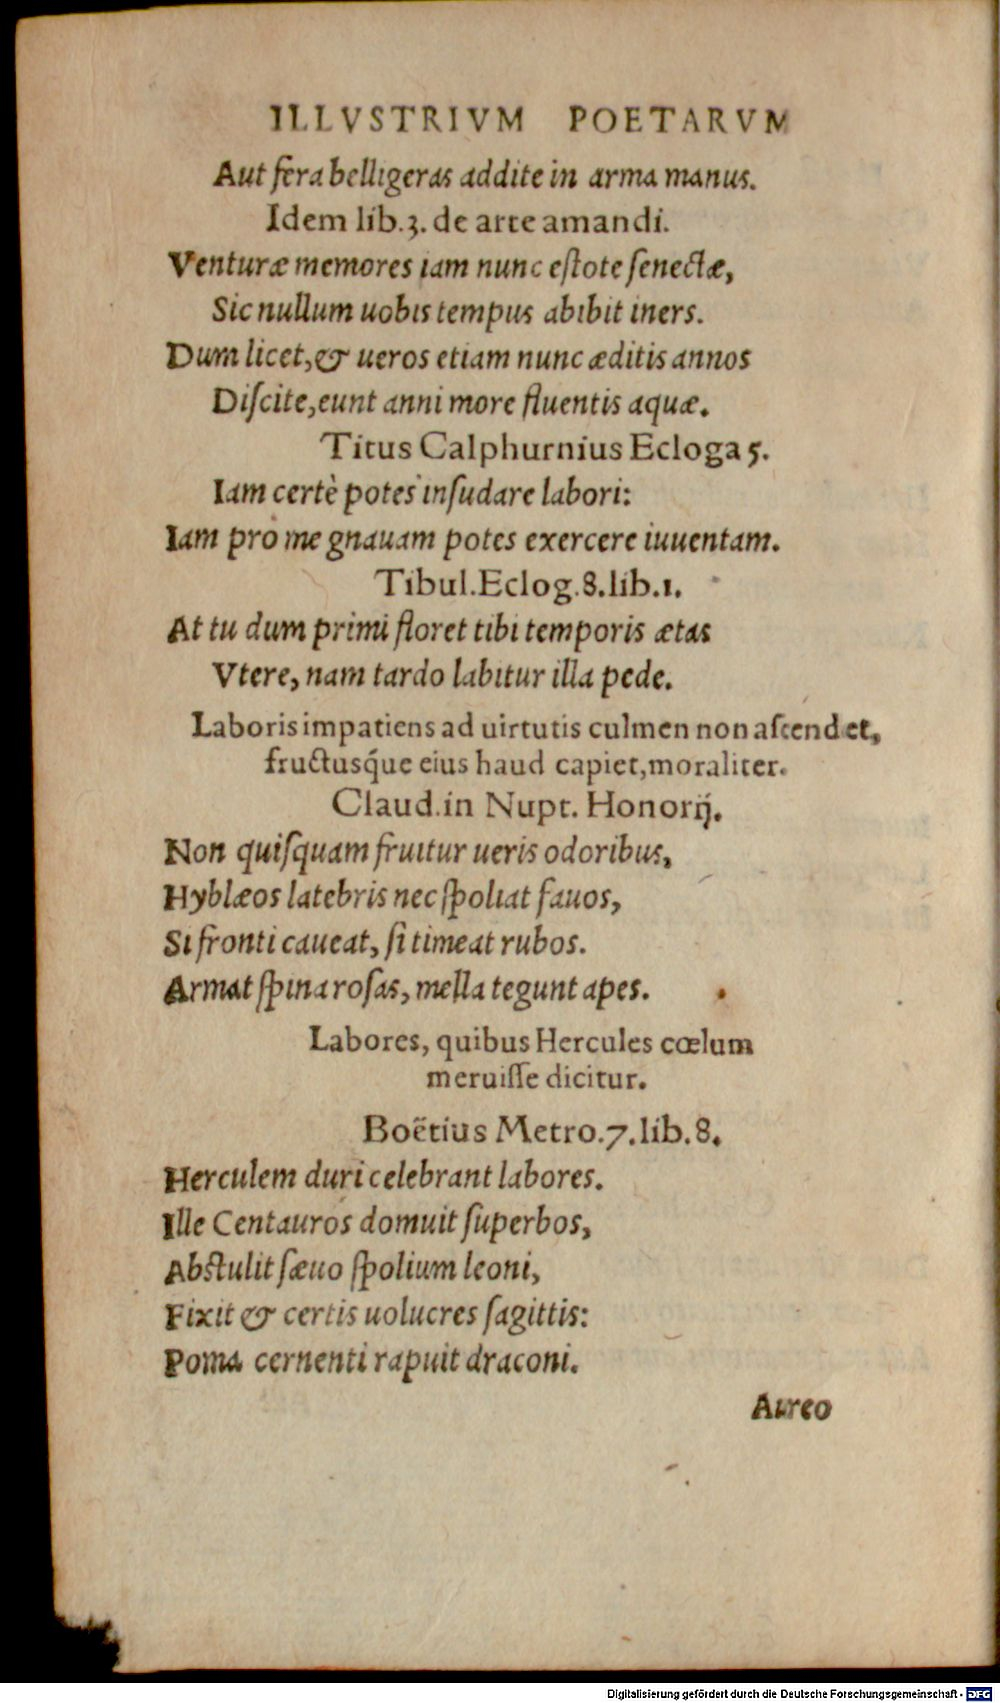 ILLVSTRIVM POETARVM
Aut fera belligeras addite in arma manus.
Idem lib.3. de arte amandi.
Venturæ memores iam nunc eſtote ſenectæ,
Sic nullum uobis tempus abibit iners.
Dum licet,& ueros etiam nunc æditis annos
Diſcite,eunt anni more fluentis aquæ.
Titus Calphurnius Ecloga 5.
Iam certè potes inſudare labori:
Iam pro me gnauam potes exercere iuuentam.
Tibul.Eclog.8.lib.1.
At tu dum primi floret tibi temporis ætas
Vtere, nam tardo labitur illa pede.
Laboris impatiens ad uirtutis culmen non aſcendet,
fructusq́ue eius haud capiet,moraliter.
Claud.in Nupt. Honorij.
Non quiſquam fruitur ueris odoribus,
Hyblæos latebris nec ſpoliat fauos,
Si fronti caueat, ſi timeat rubos.
Armat ſpina roſas, mella tegunt apes.
Labores, quibus Hercules cœlum
meruiſſe dicitur.
Boëtius Metro.7.lib.8.
Herculem duri celebrant labores.
Ille Centauros domuit ſuperbos,
Abſtulit ſæuo ſpolium leoni,
Fixit & certis uolucres ſagittis:
Poma cernenti rapuit draconi.
Aureo
Digitalisierung gefördert durch die Deutsche Forschungsgemeinschaft - DFG